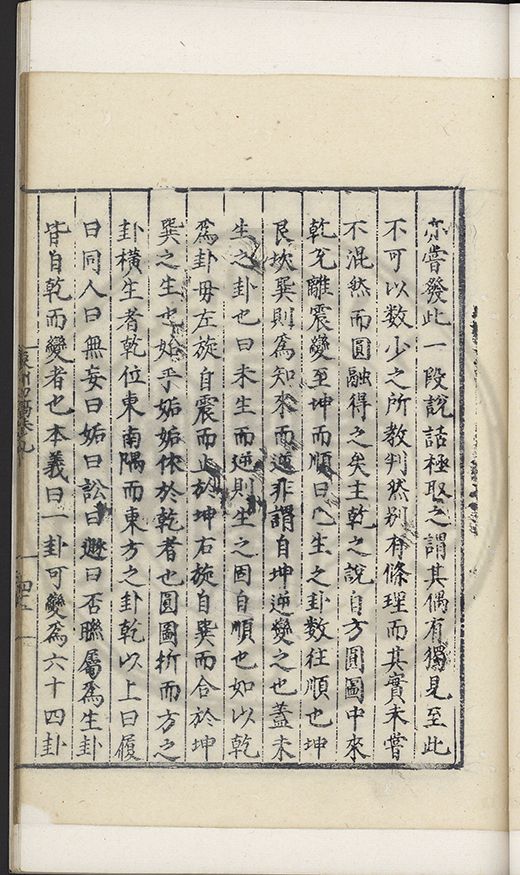 亦嘗發此一段說話極取之謂其偶有獨見至此
不可以数少之所教判然别有條理而其實未嘗
不混然而圓融得之矣主乾之說自方圓圖中來
乾兊離震變至坤而順曰已生之卦数徃順也坤
艮坎巽則爲知來而逆非謂自坤逆變之也盖未
生之卦也曰未生而逆則生之固自順也如以乾
爲卦毋左旋自震而止於坤右旋自巽而合於坤
巽之生也始乎姤姤休於乾者也圓圖折而方之
卦橫生者乾位東南隅而東方之卦乾以上曰履
曰同人曰無妄曰姤曰訟曰遯曰否聯屬爲生卦
皆自乾而變者也本義曰一卦可變爲六十四卦